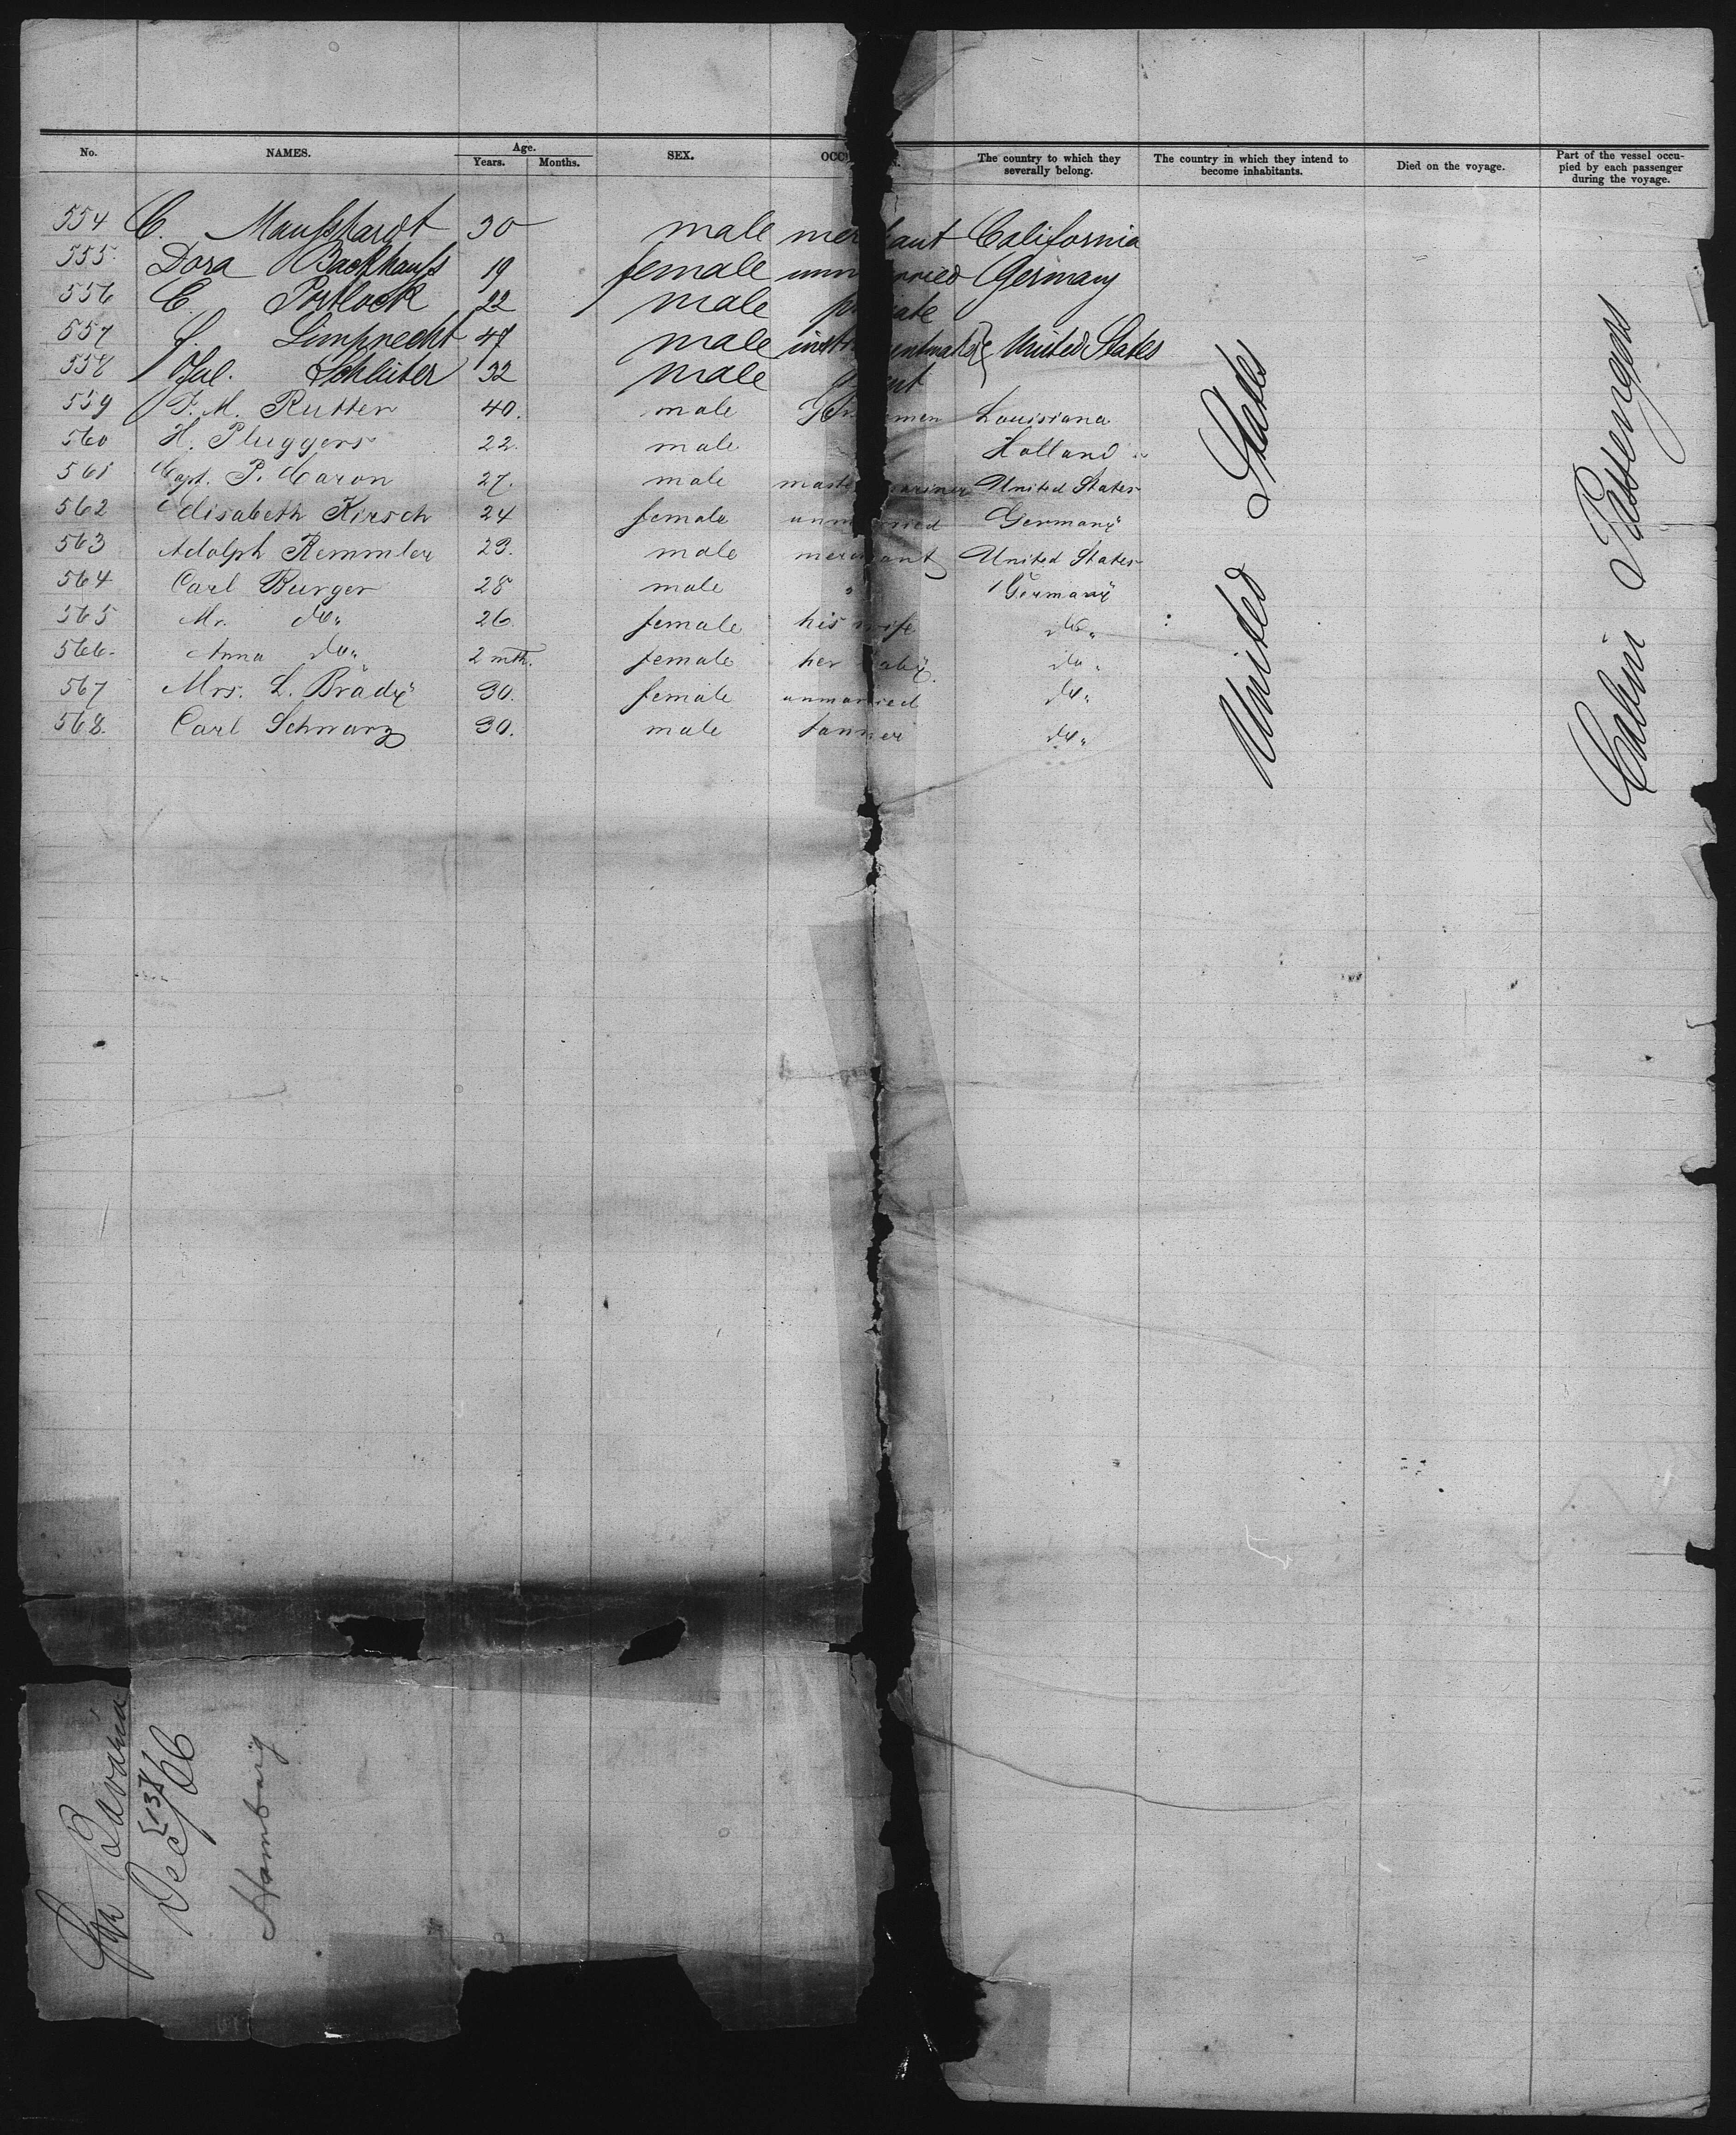 No. NAMES. Age. Years. Months. SEX. OCCU The country to which they severally belong. The country in which they intend to become inhabitants. Died on the voyage. Part of the vessel occupied by each passenger during the voyage.
554 C. Maufshardt 30 male mer ant California
555. Dora Backhaufs 19 female unm rried Germany
556 C. Portlock 22 male p ate
557 Limprecht 47 male inst entmaker } United States
558 Jul. Schlüter 32 male nt
559 F. M. Rutter 40. male men Louisiana
560 H. Pluggers 22. male Holland
561 Capt. P. Caron 27. male maste mariner United States
562 Elisabeth Kirsch 24 female unm rried Germany
563 Adolph Remmler 23. male merchant United States
564 Carl Burger 28 male " Germany
565 M. do " 26. female his wife do "
566. Anna do " 2 mth. female her baby do "
567 Mrs. L. Brady 30. female unmarried do "
568. Carl Schwarz 30. male tanner do "
United States
Cabin Passengers
Bavaria
13
Dec /66
Hamburg